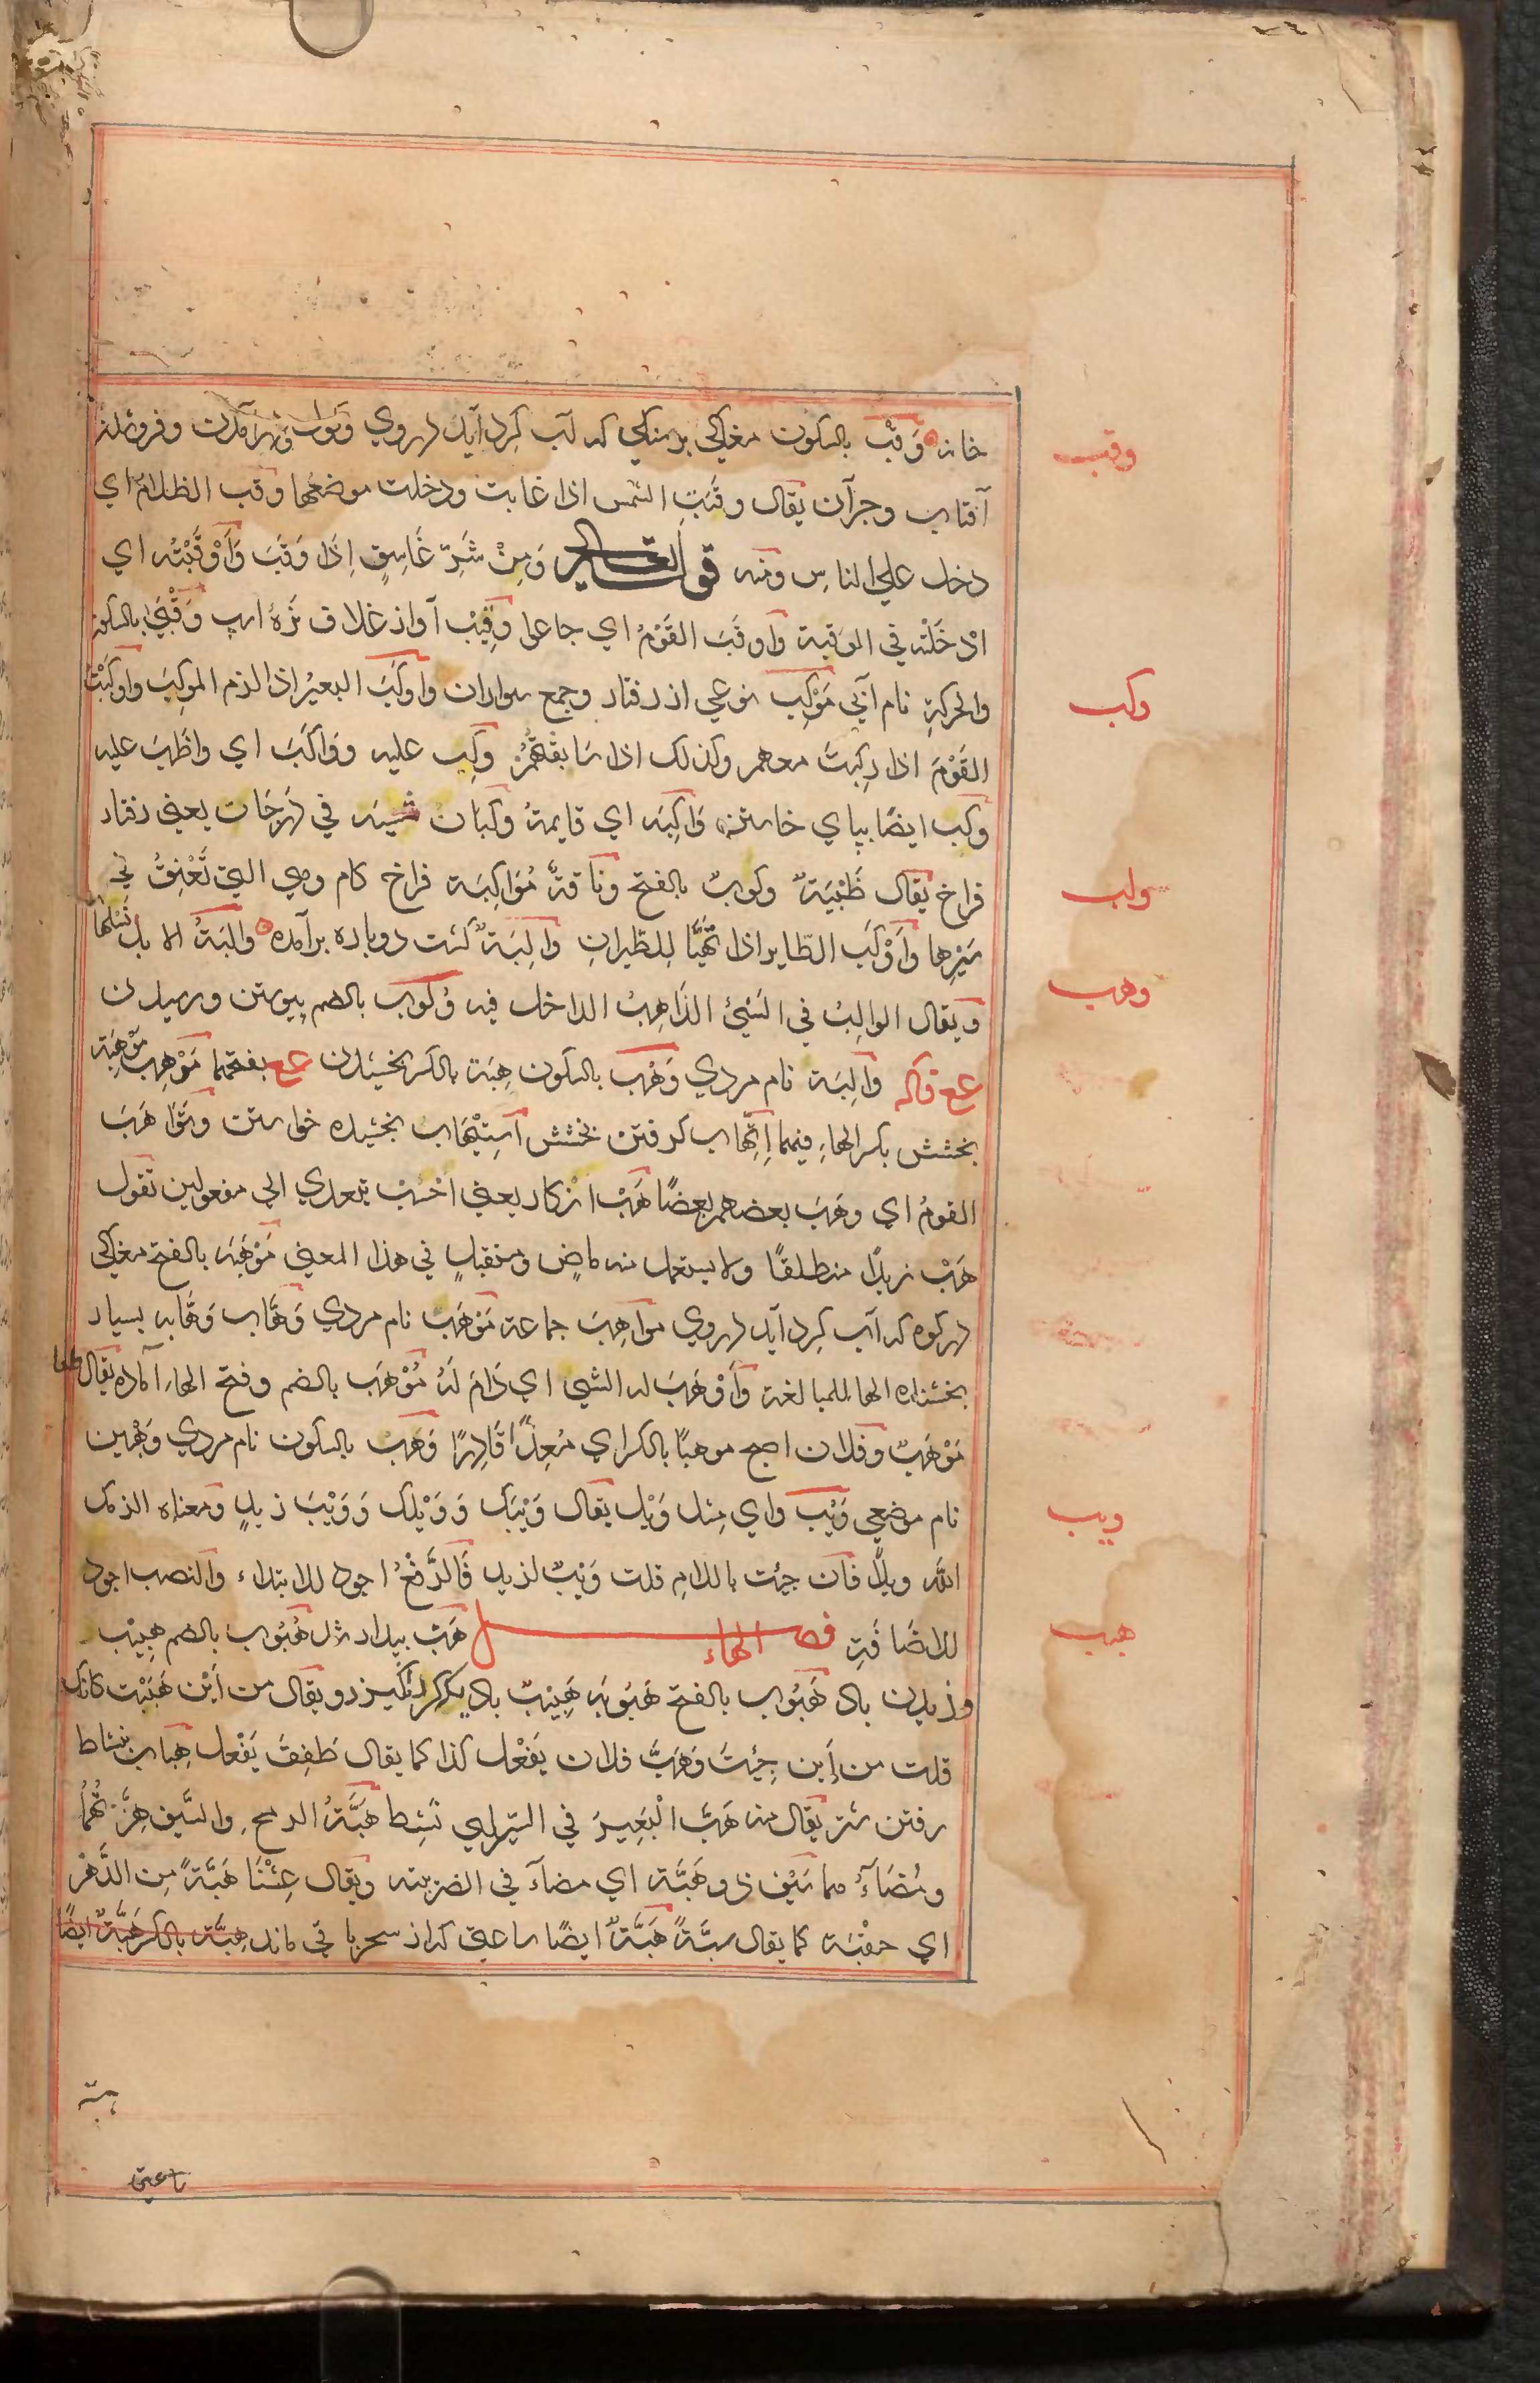 خانه وَقْب بالسكون مغاكي برسنكي كه آب كرد آيد دروي وقوب وقب درآمدن وفروشدن
وقب
آفتاب وجزآن يقال وقَبَتِ الشمس اذا غابت ودخلت موضعها وقب الظلام اي
دخل علي الناس ومنه قوله تعالى وَمِنْ شَرِّ غَاسِقٍ اِذَا وَقَبَ وَأَوْقَبْتُه اي
ادْخَلْته في الوقبة وَاوقَبَ القَوْمُ اي جاعوا وَقِيْب آواز غلاف نرهٔ اسپ وَقْبَيٰ بالسكون
والحركة نام آبي مَوْكِب نوعي از رفتار وجمع سواران وَاوكَبَ البعيرُ اذا لزم الموكِبَ وَاوكَبْتُ
وكب
القَوْمَ اذا ركبتَ معهم وكذلك اذا سَابقْتَهُمْ وكب عليه ووَاكَبَ اي واظَبَ عليه
وكب ايضًا بپاي خاستن وَاكِبَه اي قايمةُ وكَبان في دَرجَات يعني رفتار
فراخ يقال ظَبْيَةٌ وكوبٌ بالفتح ونَاقةٌ مُوَاكِبَة فراخ كام وهي التي تُعْنِقُ في
ولب
سَيْرِها وَأَوْكَبَ الطّاير اذا تَهَيَّا لِلطَّيرانِ وَالِبَةٌ كشت دوباره برآمده وَالبَةُ الابل نَسْلُها
وَيقال الوالِبُ في الشَيْئ الذَاهِبُ الداخل فيه وُلُوب بالضم پيوستن ورسيدن
وهب
مع فاكه وَالِبَة نام مردي وَهْب بالسكون هِبَة بالكسر بخشيدن مع بفتحهما مَوْهِب مَوْهِبَة
بخشش بكسر الهاء فيهما اِتِّهاب كرفتن بخشش اِسْتِيْهَاب بخشيده خواستن وتَوَاهَبَ
القومُ اي وهَبَ بعضهم بعضًا هَبْ انْكار يعني احْسِبْ يتعدي الي مفعولين تقول
هَبْ زيدًا منطلقًا ولا يستعمل منه ماضٍ ومستقبلٍ في هذا المعني مَوْهَبَه بالفتح مغاكي
دركوه كه آب كرد آيد دروي مواهِبَ جماعة مَوْهَب نام مردي وَهّاب وَهّابه بسيار
بخشنده الها للمبالغة وَأَوْهَبَ له الشي اي دَامَ لَهُ مُوْهَب بالضم وفتح الهاء آماده يقال طعام
مَوْهَبٌ وفلان اصبح موهبًا بالكسر اي مُعِدًّا قَادِرًا وَهَبْ بالسكون نام مردي وَهْبِين
نام موضعي وَيْب واي مثل وَيْل يقال وَيْبَك وَوَيْلَك وَوَيْبَ زيدٍ ومعناه الزمك
ويب
الله ويلًا فان جئت باللام قلت وَيْبٌ لزيد فَالرَّفْعُ اجود للابتداء والنصب اجود
للاضَافَةِ فصل الهاء هَبّ بيدار شدن هُبُوب بالضم هَبِيْب
هبب
وزيدن باد هَبُوب بالفتح هَبُوبَه هَبِيْب باد يكه كرد انكيزد ويقال من اَيْن هَبَبْت كانك
قلت من اَين جِئْتَ وَهَبَّ فلان يَفْعُل كذا كما يقال طَفِقَ يَفْعل هِبَاب نشاط
رفتن ستر يقال منه هَبَّ الْبَعِيرَ في السَير اي نَشِط هَبَّةُ الرمح والسَّيف هِزَّتُهُما
ومُضَاءُ مما سَيْف ذوهَبَّة اي مضآءَ في الضريبته ويقال عِشْنَا هَبَّةً مِن الدَّهْر
اي حقْبَة كما يقال سَبَّةً هَبَّةٌ ايضًا ساعتي كه از سحر باقي ماند هِبَّة بالكسر هَبَّةٌ ايضًا
هبّة
ساعتي